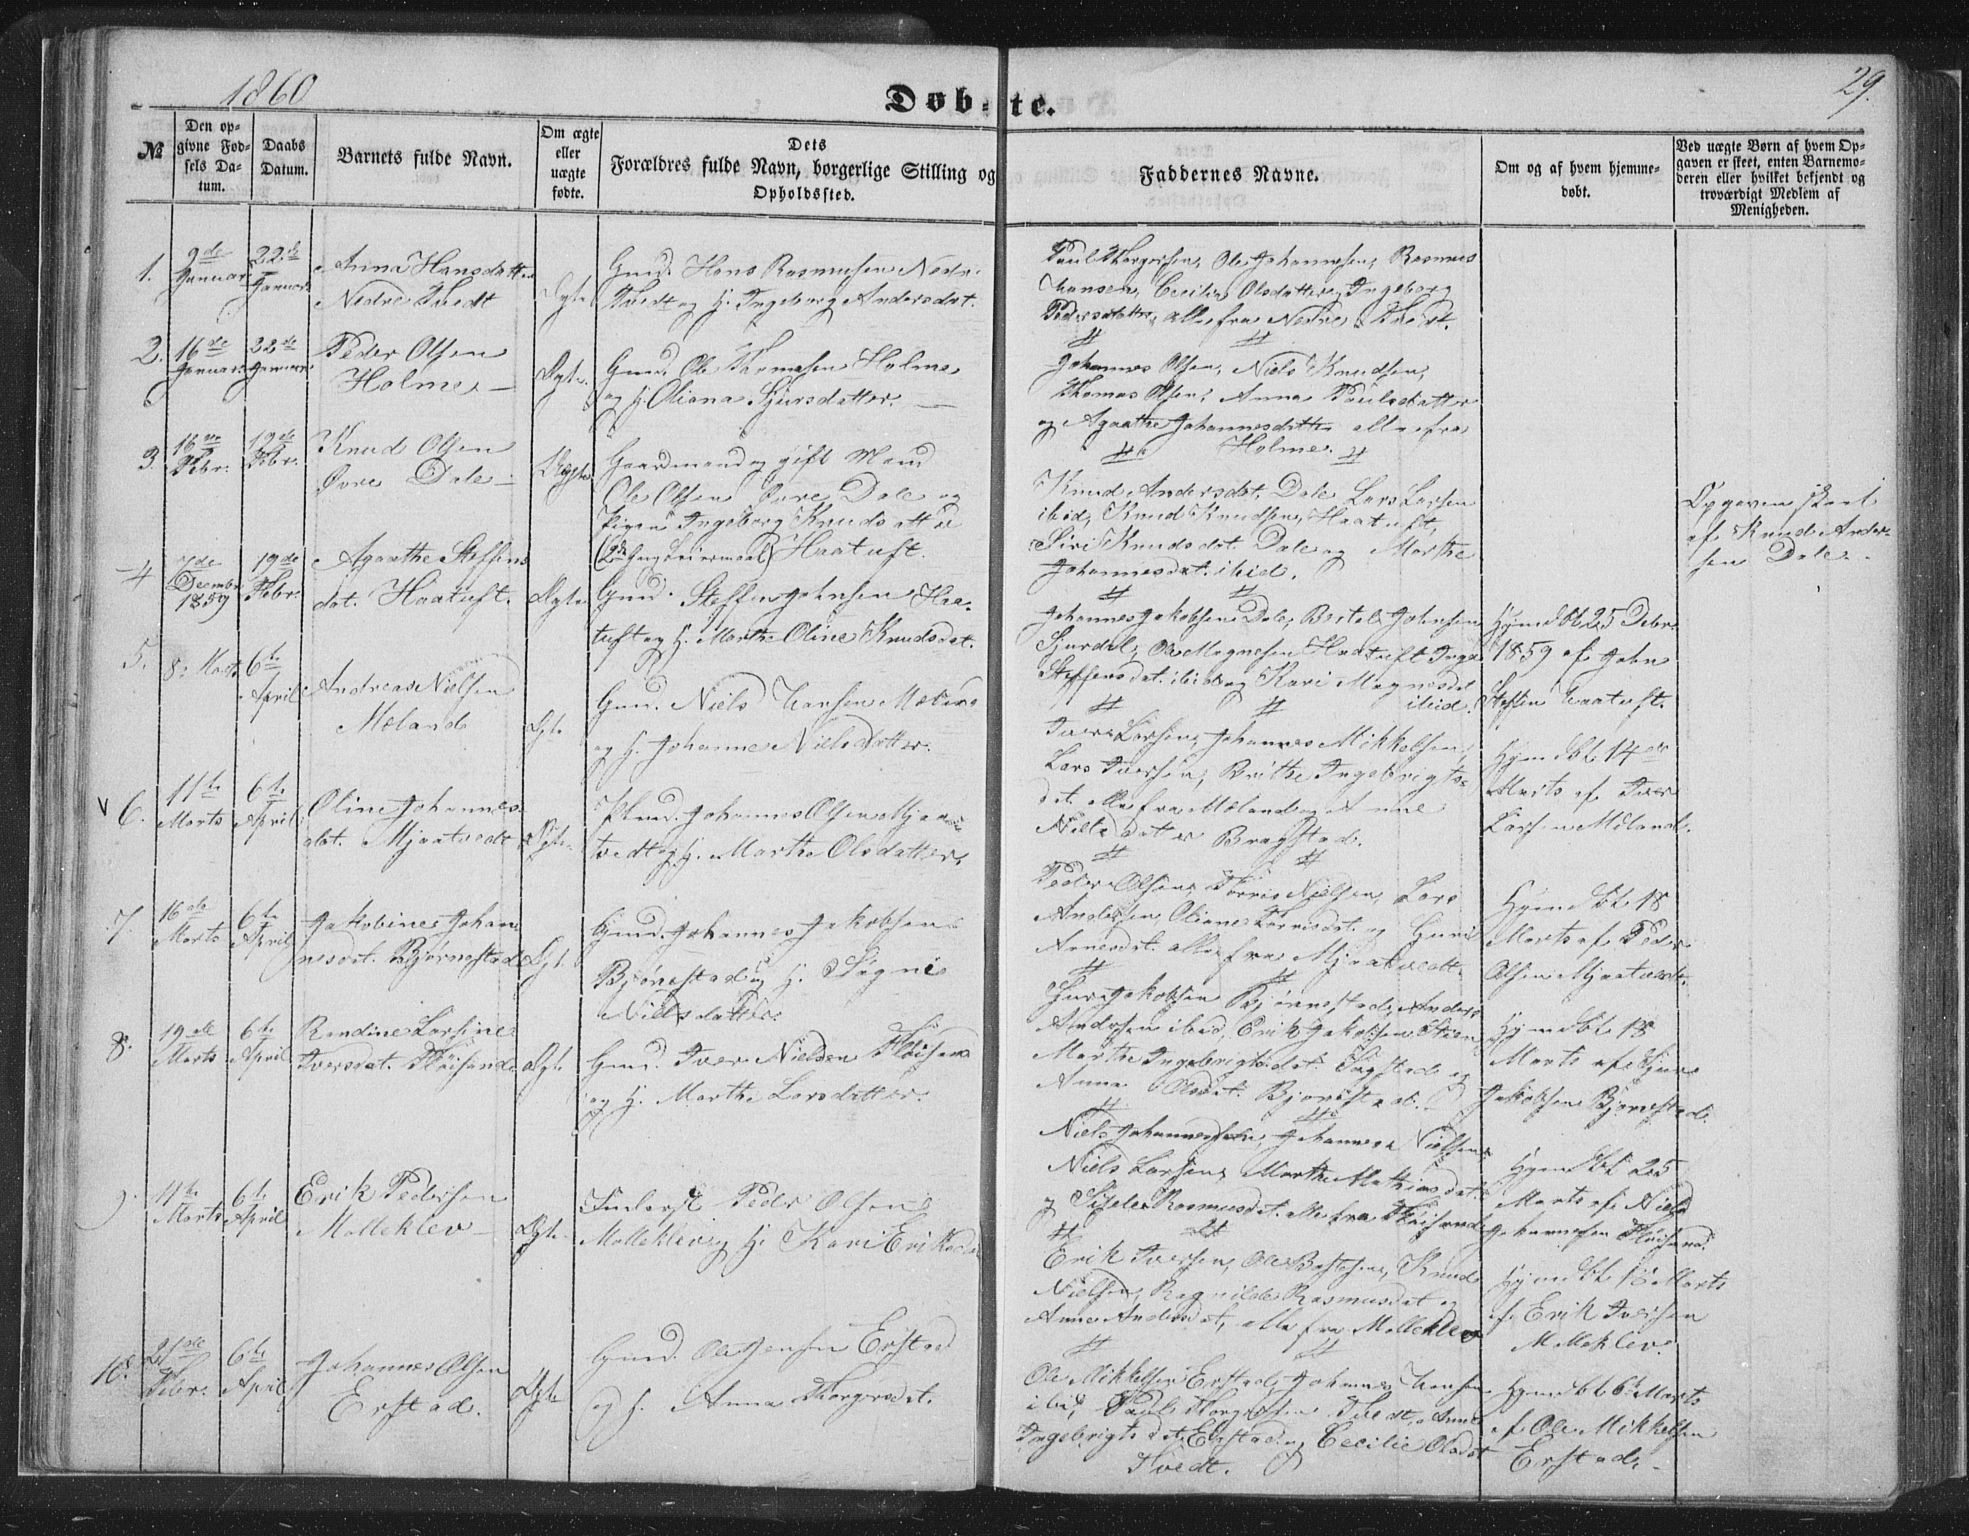 1860
29.
Døbte.
№
Den op-
givne Fød-
sels Da-
tum.
Daabs
Datum.
Barnets fulde Navn.
Om ægte
eller
uægte
fødte.
Dets
Forældres fulde Navn, borgerlige Stilling og
Opholdssted.
Faddernes Navne.
Om og af hvem hjemme-
døbt.
Ved uægte Børn af hvem Op-
gaven er skeet, enten Barnemo-
deren eller hvilket bekjendt og
troværdigt Medlem af
Menigheden.
1.
9de
Januar
22de
Januar
Anna Hansdatter
Nedre Thvedt
Ægte
Gmd. Hans Rasmussen Nedre
Thvedt og H. Ingeborg Andersdat.
Paul Thorgersen, Ole Johannesen, Rasmus
Hansen, Cecilia Olsdatter, Ingeborg
Pedersdatter, alle fra Nedre Thvedt.
2.
16de
Januar
22de
Januar
Peder Olsen
Holme
Ægte
Gmd. Ole Thomesen Holme
og H. Oliana Sjursdatter.
Johannes Olsen, Niels Knudsen,
Thomas Olsen, Anna Paulsdatter
og Agaathe Johannesdatter alle fra
Holme.
3.
16de
Febr.
19de
Febr.
Knud Olsen
Øvre Dale
Uægte
Gaardmand og gift Mand
Ole Olsen Øvre Dale og
Pigen Ingeborg Knudsdatter
(2den Gang Leiermaal) Haatuft.
Knud Andersdat. Dale Lars Larsen
ibid, Knud Knudsen, Haatuft,
Siri Knudsdat. Dale og Marthe
Johannesdat. ibid.
Opgaven skeet
af Knud Ander-
sen Dale
4
7de
Decembr
1859
19de
Febr.
Agaathe Steffens
dat. Haatuft.
Ægte
Gmd. Steffen Johnsen Haa-
tuft og H. Marthe Oline Knudsdat.
Johannes Jakobsen Dale, Bertel Johnsen
Sjurdal, Ole Magnesen Haatuft Inga
Steffensdat. ibid og Kari Magnesdat
ibid.
Hjemdbt 25 Debr.
1859 af John
Steffen Haatuft.
5.
8. Marts
6te
April
Andreas Nielsen
Meland
Ægte
Gmd. Niels Hansen Meland
og H. Johanne Nielsdatter.
Iver Larsen, Johannes Mikkelsen,
Lars Iversen, Brithe Ingebrigts-
dat. alle fra Meland og Anne
Nielsdatter Bragstad.
Hjemdbt 14de
Marts af Iver
Larsen Meland.
6.
11te
Marts
6te
April
Oline Johannes
dat. Mjaatvedt
Ægte
Plmd. Johannes Olsen Mjaa-
tvedt og H. Marthe Olsdatter.
Peder Olsen, Torris Nielsen, Lars
Andersen Oliane Torrisdat. og Guri
Arnesdat. alle fra Mjaatvedt.
Hjemdbt 18
Marts af Peder
Olsen Mjaatvedt.
7.
16de
Marts
6te
April
Jakobine Johan
nesdat. Bjørnestad
Ægt.
Gmd. Johannes Jakobsen
Bjørnestad og H. Signi
Nielsdatter.
Sjur Jakobsen Bjørnestad, Anders
Andersen ibid, Erik Jakobsen
Marthe Ingebrigtsdat. Tagstad og
Anna Olsdat. Bjørnstad.
Hjemdbt 18
Marts af Sjur
Jakobsen Bjørnestad.
8.
19de
Marts
6te
April
Randine Larsine
Iversdat. Fløisand
Ægte
Gmd. Iver Nielsen Fløisand
og H. Marthe Larsdatter.
Niels Johannessen, Johannes Nielsen
Niels Larsen, Marthe Mathiasdat.
og Sisele Rasmusdat. alle fra Fløisand
Hjemdbt 25
Marts af Niels
Johannesen Fløisand.
9.
11te
Marts
6te
April
Erik Pedersen
Molleklev
Ægte
Inderst Peder Olsen
Molleklev og H. Kari Eriksdat
Erik Iversen, Ole Bastesen, Knud
Nielsen, Ragnilde Rasmusdat og
Anne Andersdat, alle fra Molleklev
Hjemdbt 18 Marts
af Erik Iversen
Molleklev.
10.
21de
Febr.
6te
April
Johannes Olsen
Erstad.
Ægte
Gmd. Ole Jensen Erstad
og H. Anna Thorgersdat.
Ole Mikkelsen Erstad, Johannes Hansen
ibid, Paul Thorgersen Thvedt, Anne
Ingebrigtsdat. Erstad og Cecilie Olsdat
Thvedt.
Hjemdbt 6te Marts
af Ole Mikkelsen
Erstad.